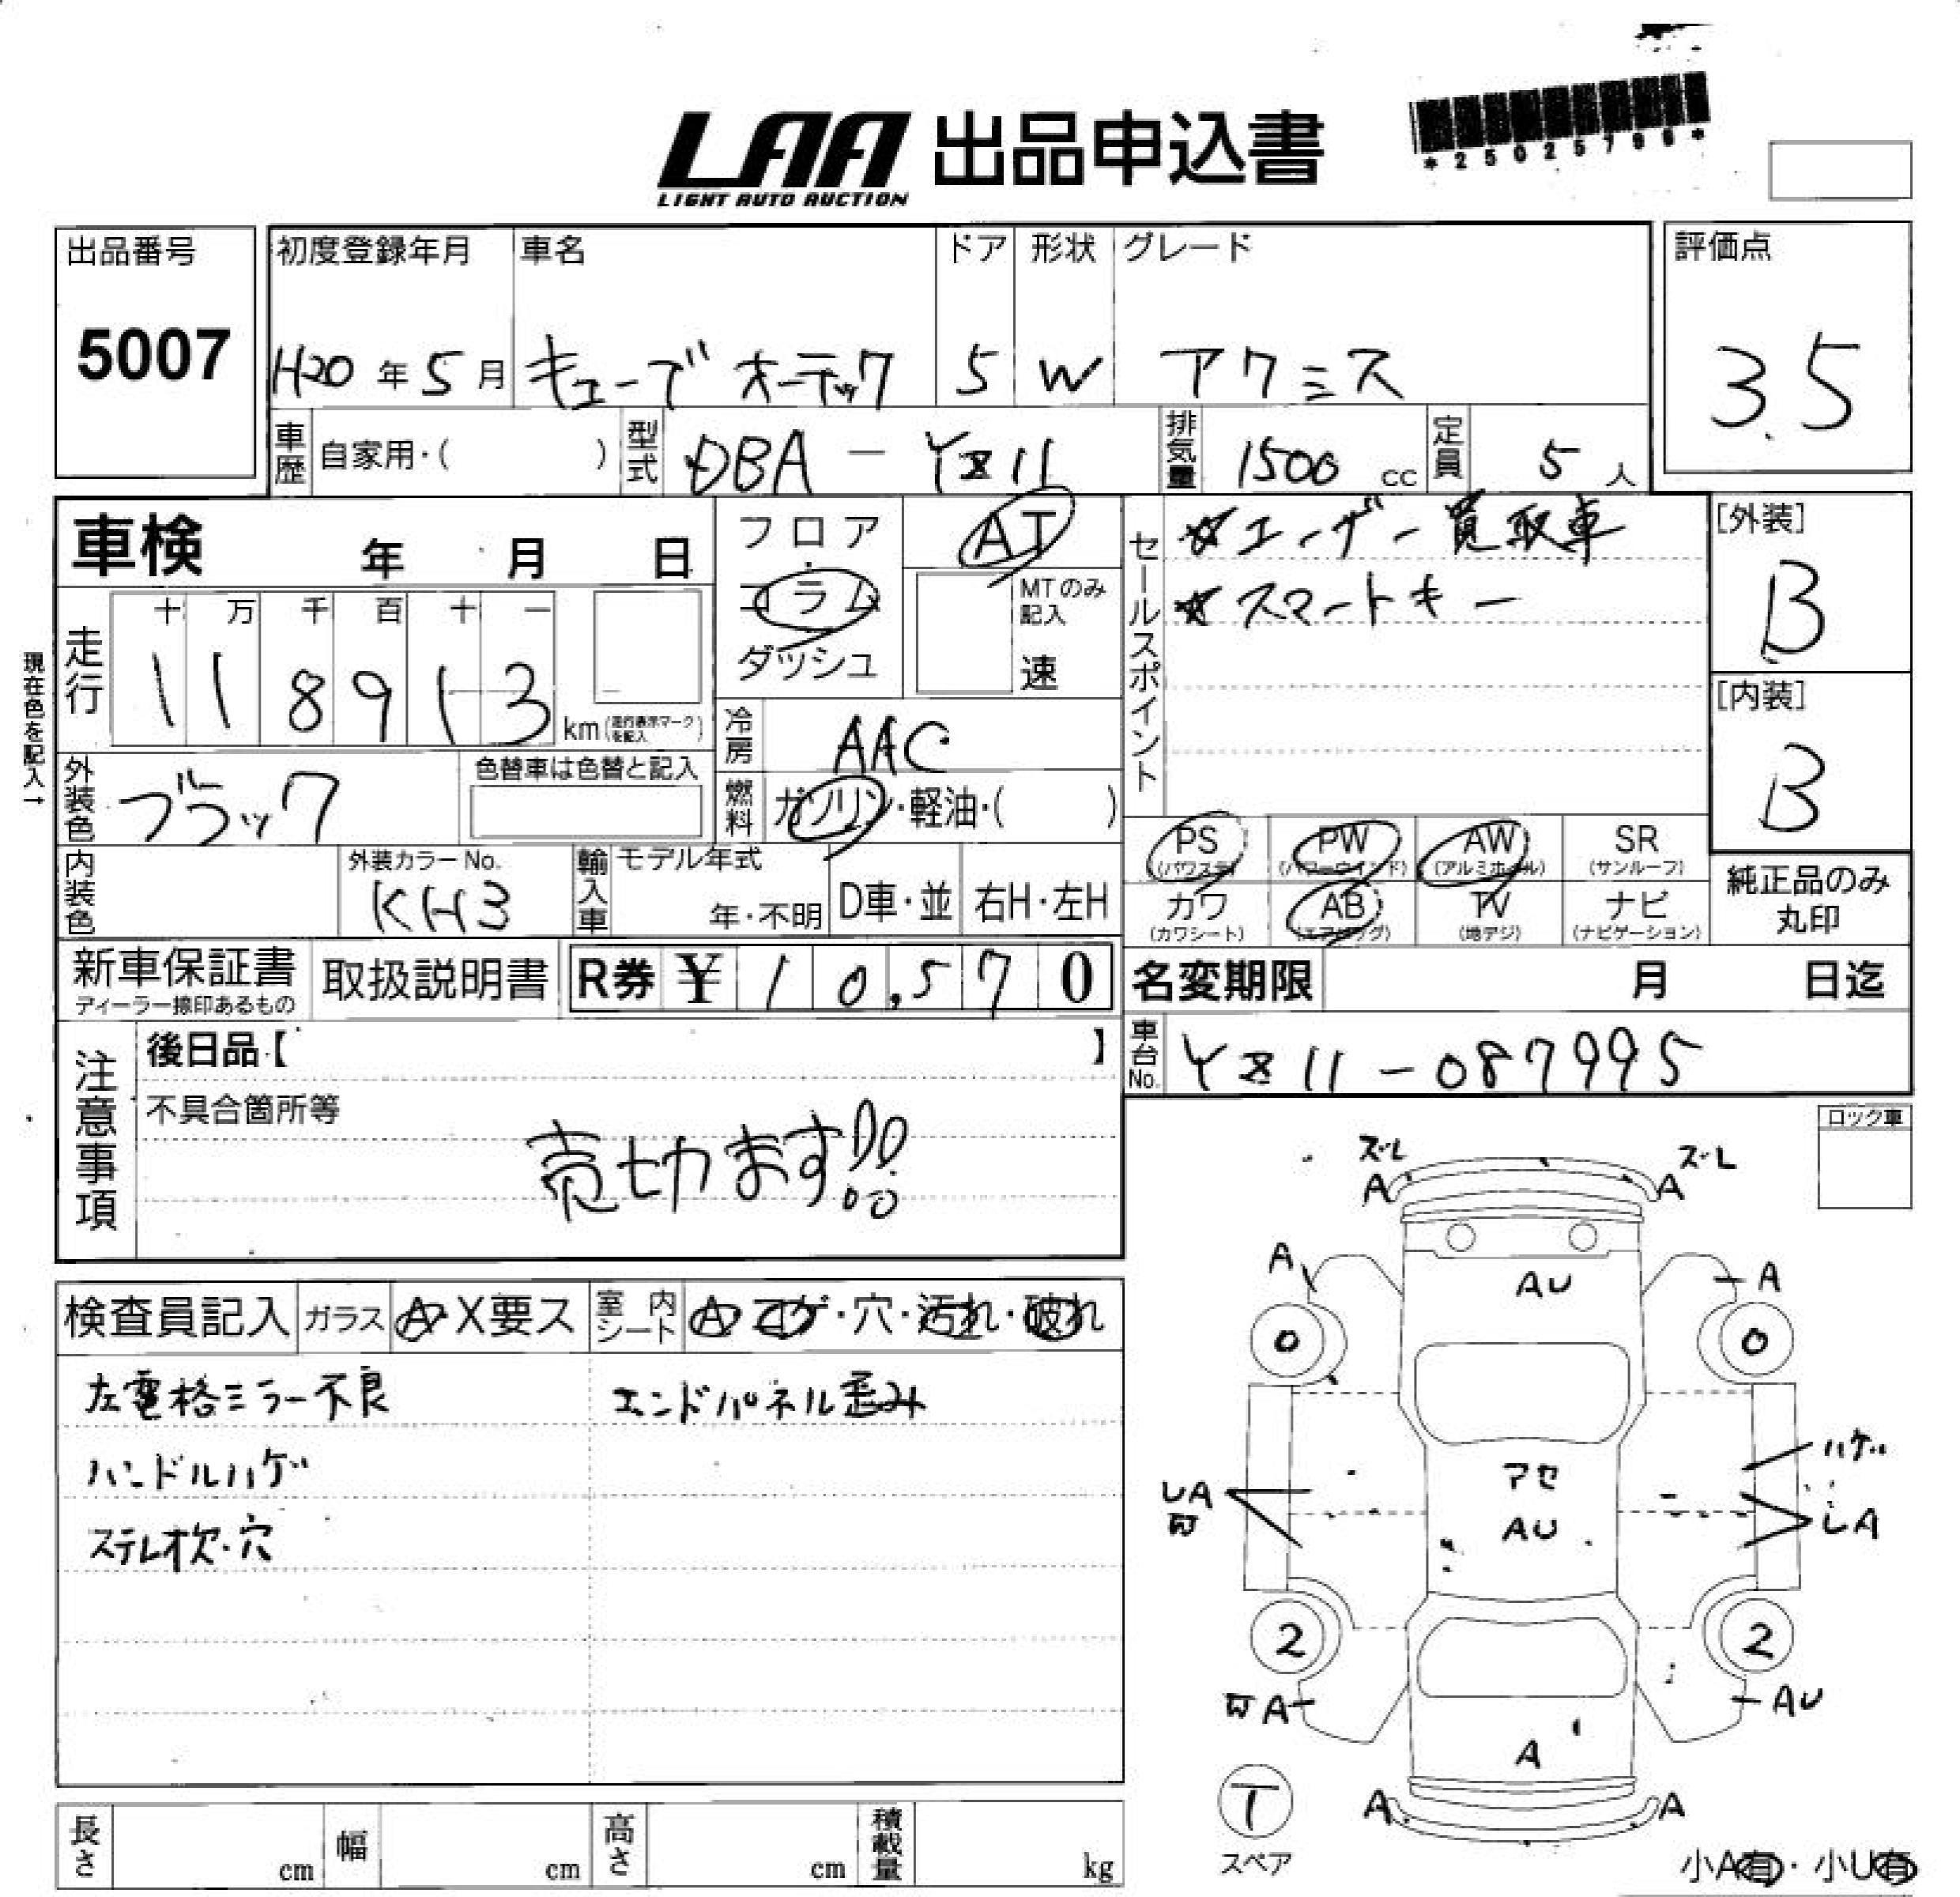 LAA 出品申込書
LIGHT AUTO AUCTION
*25025796*
出品番号
5007
初度登録年月
H20年5月
車名
キューブ オーテック
ドア
5
形状
W
グレード
アクシス
評価点
3.5
車歴 自家用・( )
型式 DBA-YZ11
排気量 1500 cc
定員 5 人
車検 年 月 日
フロア・コラム ダッシュ
AT
MTのみ記入
速
セールスポイント
☆ユーザー買取車
☆スマートキー
[外装]
B
[内装]
B
現在色を記入→
走行
十 万 千 百 十 一
118913
km(走行表示マークを記入)
冷房 AAC
外装色 ブラック
色替車は色替と記入
燃料 ガソリン・軽油・( )
内装色
外装カラーNo.
KH3
輸入車
モデル年式
年・不明
D車・並
右H・左H
PS (パワステ)
PW (パワーウインド)
AW (アルミホイール)
SR (サンルーフ)
カワ (カワシート)
AB (エアバッグ)
TV (地デジ)
ナビ (ナビゲーション)
純正品のみ丸印
新車保証書
ディーラー捺印あるもの
取扱説明書
R券 ¥10,570
名変期限 月 日迄
車台No. YZ11-087995
注意事項
後日品【 】
不具合箇所等
売切ます!!
ロック車
検査員記入
ガラス A・X要ス
室内シート A・コゲ・穴・汚れ・破れ
左電格ミラー不良
エンドパネル歪み
ハンドルハゲ
ステレオ欠・穴
ズレ
ズレ
A
A
A
AU
A
0
0
アセ
AU
ハゲ
LA
LA
2
2
A
AU
A
A
A
T
スペア
小A有・小U有
長さ cm
幅 cm
高さ cm
積載量 kg